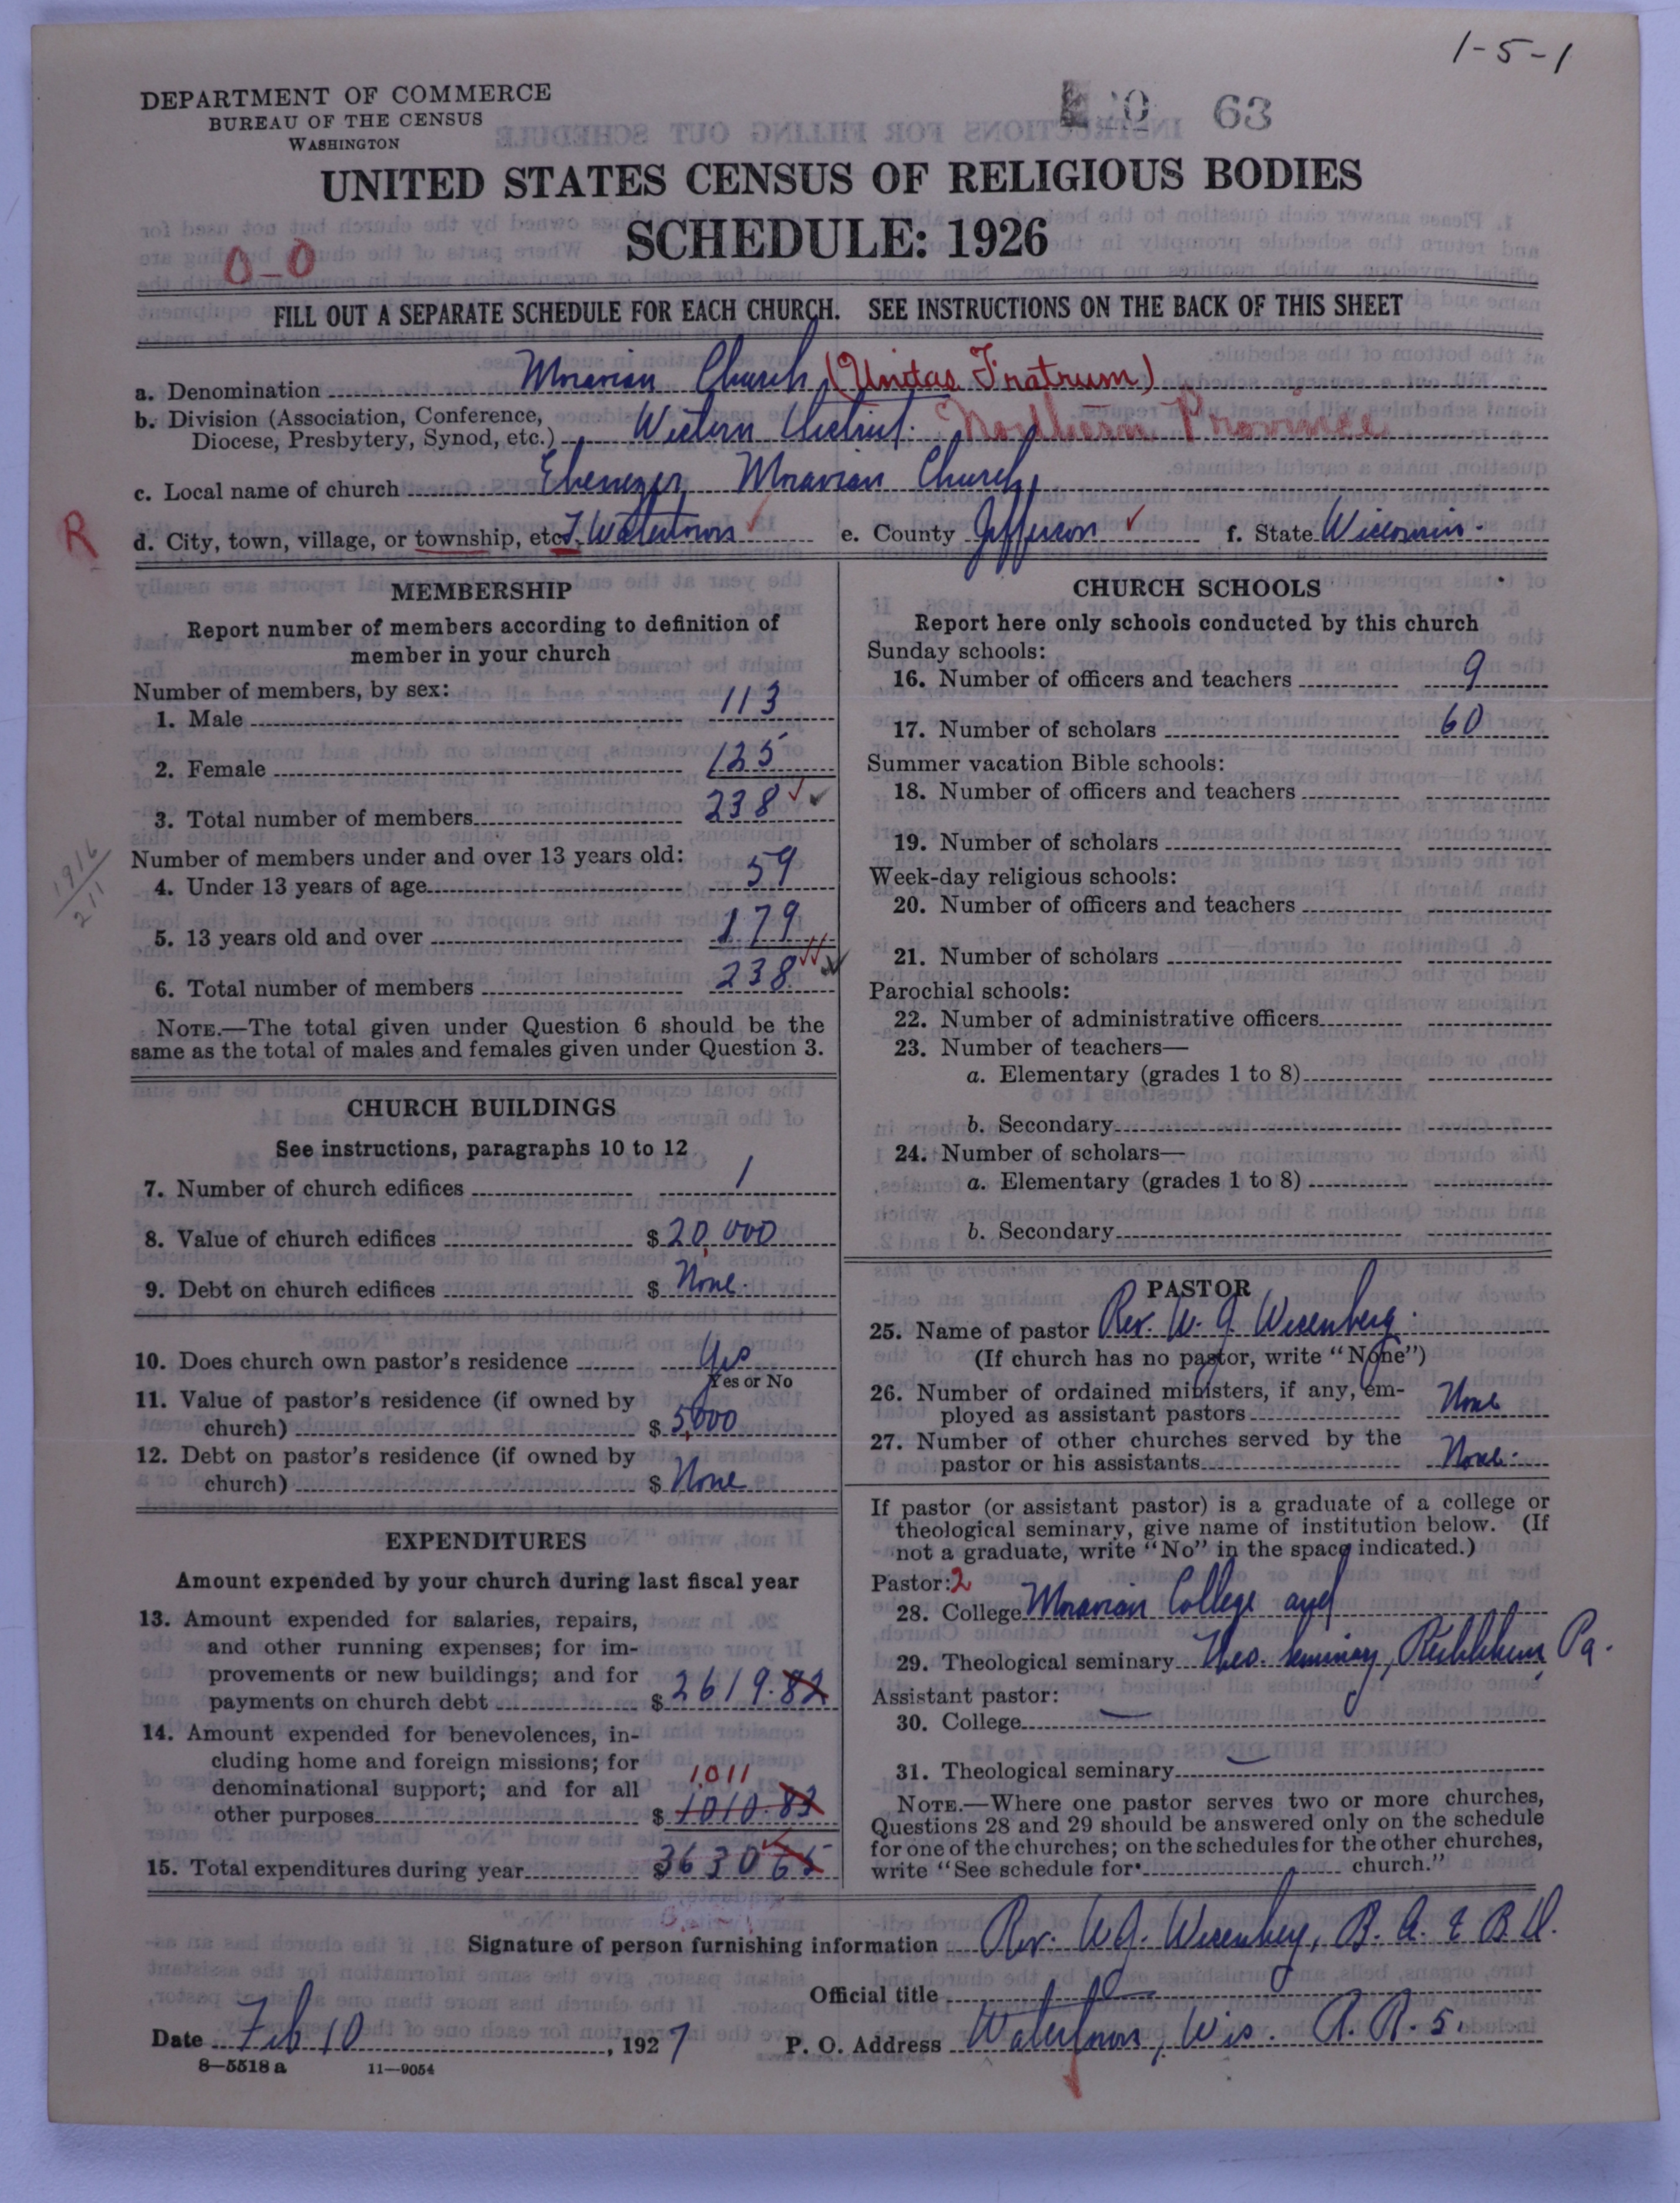 1-5-1
DEPARTMENT OF COMMERCE
BUREAU OF THE CENSUS
WASHINGTON
63
UNITED STATES CENSUS OF RELIGIOUS BODIES
SCHEDULE: 1926
0-0
FILL OUT A SEPARATE SCHEDULE FOR EACH CHURCH. SEE INSTRUCTIONS ON THE BACK OF THIS SHEET
a. Denomination Moravian Church (Unitas Fratrum)
b. Division (Association, Conference,
Diocese, Presbytery, Synod, etc.) Western District. Northern Province
c. Local name of church Ebenezer Moravian Church
R
d. City, town, village, or township, etc. T. Watertown e. County Jefferson f. State Wisconsin.
MEMBERSHIP
Report number of members according to definition of
member in your church
Number of members, by sex:
1. Male 113
2. Female 125
3. Total number of members 238
1916
211
Number of members under and over 13 years old:
4. Under 13 years of age 59
5. 13 years old and over 179
6. Total number of members 238
NOTE.—The total given under Question 6 should be the
same as the total of males and females given under Question 3.
CHURCH BUILDINGS
See instructions, paragraphs 10 to 12
7. Number of church edifices 1
8. Value of church edifices $ 20,000
9. Debt on church edifices $ None.
10. Does church own pastor's residence Yes
Yes or No
11. Value of pastor's residence (if owned by
church) $ 5,000
12. Debt on pastor's residence (if owned by
church) $ None
EXPENDITURES
Amount expended by your church during last fiscal year
13. Amount expended for salaries, repairs,
and other running expenses; for im-
provements or new buildings; and for
payments on church debt $ 2619.82
14. Amount expended for benevolences, in-
cluding home and foreign missions; for
denominational support; and for all
1,011
other purposes $ 1010.83
15. Total expenditures during year $ 3630 65
CHURCH SCHOOLS
Report here only schools conducted by this church
Sunday schools:
16. Number of officers and teachers 9
17. Number of scholars 60
Summer vacation Bible schools:
18. Number of officers and teachers
19. Number of scholars
Week-day religious schools:
20. Number of officers and teachers
21. Number of scholars
Parochial schools:
22. Number of administrative officers
23. Number of teachers—
a. Elementary (grades 1 to 8)
b. Secondary
24. Number of scholars—
a. Elementary (grades 1 to 8)
b. Secondary
PASTOR
25. Name of pastor Rev. W. J.
(If church has no pastor, write "None")
26. Number of ordained ministers, if any, em-
ployed as assistant pastors None
27. Number of other churches served by the
pastor or his assistants None.
If pastor (or assistant pastor) is a graduate of a college or
theological seminary, give name of institution below. (If
not a graduate, write "No" in the space indicated.)
Pastor: 2
28. College Moravian College and
29. Theological seminary Theo. Seminary, Bethlehem Pa.
Assistant pastor:
30. College —
31. Theological seminary —
NOTE.—Where one pastor serves two or more churches,
Questions 28 and 29 should be answered only on the schedule
for one of the churches; on the schedules for the other churches,
write "See schedule for church."
Signature of person furnishing information Rev. W. J. B. A. & B. D.
Official title
Date Feb 10, 1927 P. O. Address Watertown, Wis. R. R. 5.
8—5518 a 11—9054